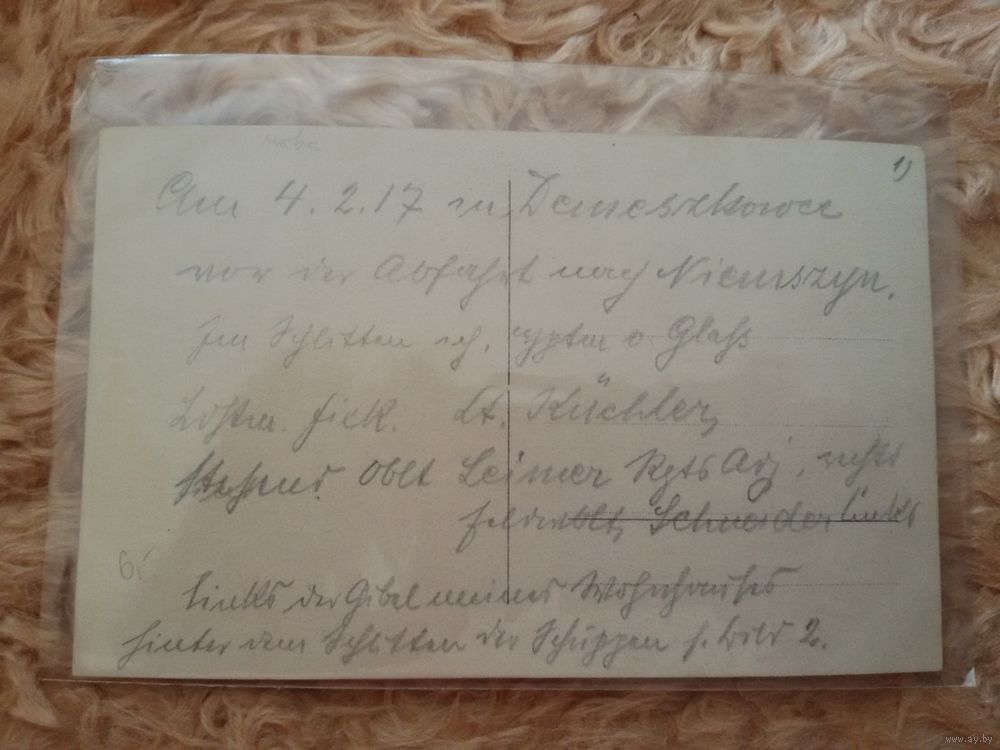 1)
Am 4.2.17 in Demeszkowce
vor der Abfahrt nach Niemszyn.
Im Schlitten ich, v Glaß
Lt. Küchler,
Stehend Oblt Leimer Rgts Adj. rechts
Schneider links
links der Gibel meines Wohnhauses
hinter dem Schlitten der Schuppen s. Bild 2.
6,-
www.ay.by